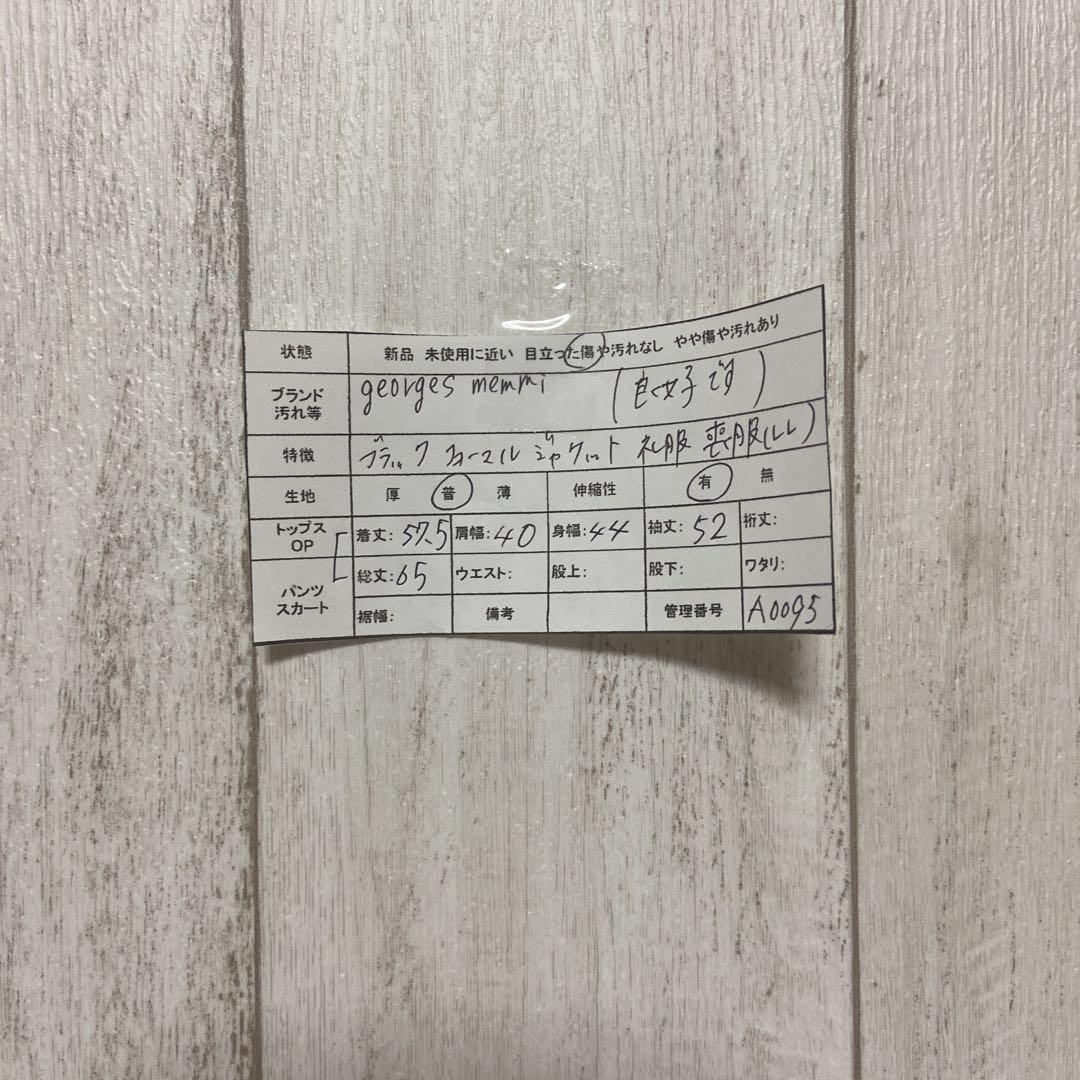 状態 新品 未使用に近い 目立った傷や汚れなし やや傷や汚れあり
ブランド 汚れ等 georges memmi (良好です)
特徴 ブラックフォーマル ジャケット 礼服 喪服(LL)
生地 厚 普 薄 伸縮性 有 無
トップス OP 着丈:57.5 肩幅:40 身幅:44 袖丈:52 裄丈:
パンツ スカート 総丈:65 ウエスト: 股上: 股下: ワタリ:
裾幅: 備考 管理番号 A0095